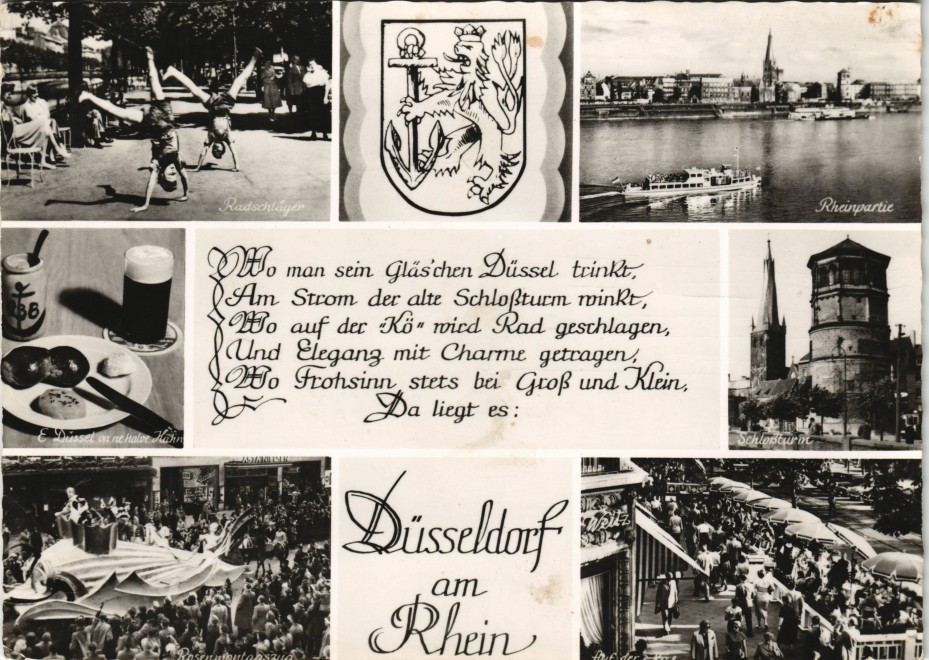 Radschläger
Rheinpartie
Wo man sein Gläs'chen Düssel trinkt,
Am Strom der alte Schloßturm winkt,
Wo auf der „Kö“ wird Rad geschlagen,
Und Eleganz mit Charme getragen,
Wo Frohsinn stets bei Groß und Klein,
Da liegt es:
E Düssel on ne halve Hahn
Schloßturm
Düsseldorf
am
Rhein
Rosenmontagszug
Auf der